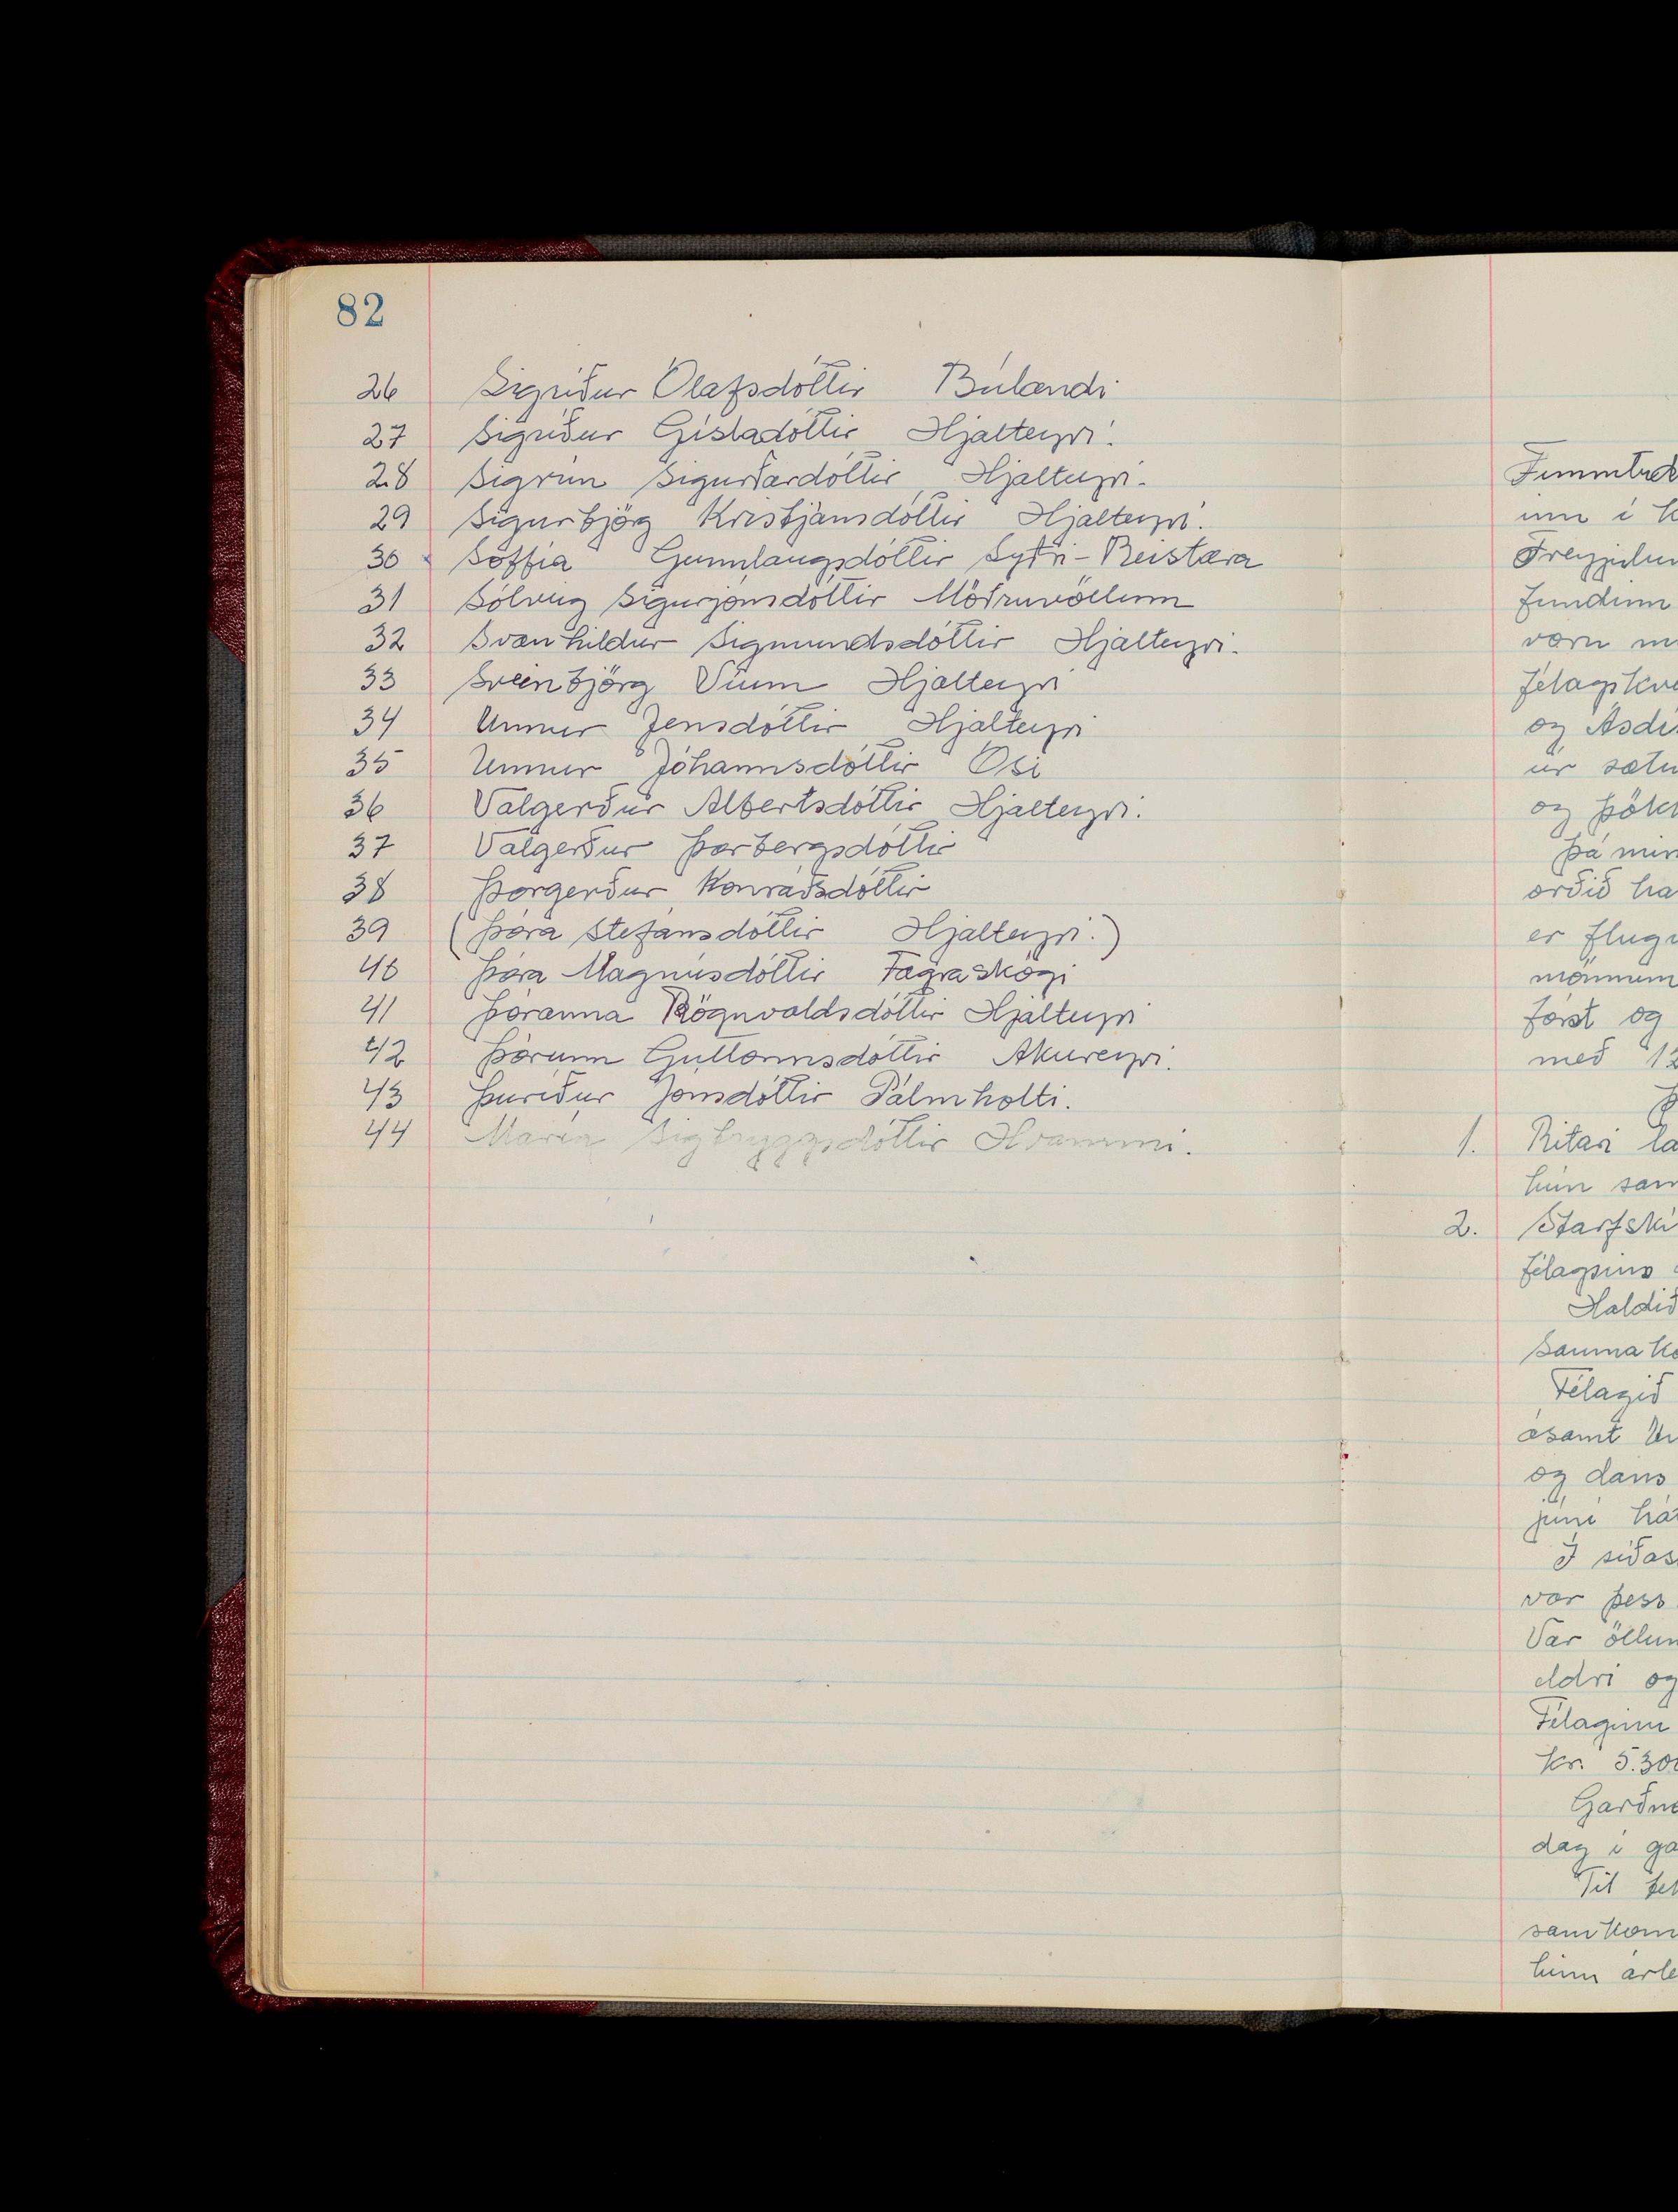 82
26 Sigríður Ólafsdóttir Búlandi
27 Sigríður Gísladóttir Hjalteyri.
28 Sigrún Sigurðardóttir Hjalteyri.
29 Sigurbjörg Kristjánsdóttir Hjalteyri.
30 Soffía Gunnlaugsdóttir Sytri-Reistara
31 Sólveig Sigurjónsdóttir Möðruvöllum
32 Svanhildur Sigmundsdóttir Hjalteyri.
33 Sveinbjörg Vium Hjalteyri
34 Unnur Jensdóttir Hjalteyri
35 Unnur Jóhannsdóttir Ósi
36 Valgerður Albertsdóttir Hjalteyri.
37 Valgerður Þorbergsdóttir
38 Þorgerður Konráðsdóttir
39 (Þóra Stefánsdóttir Hjalteyri.)
40 Þóra Magnúsdóttir Fagraskógi
41 Þóranna Rögnvaldsdóttir Hjalteyri
42 Þórunn Guttormsdóttir Akureyri.
43 Þuríður Jónsdóttir Pálmholti.
44 María Sigtryggsdóttir Hvammi.
um í
Freyju
fundinn
voru
félags
og Ásdí
úr
og þök
Þá
orðið ha
er flug
mönnum
fört og
með 12
1. Ritari la
hún sam
2. Starfski
félagsins
Haldið
sauma
Félagið
ásamt
og dans
júní
Í síðas
var þess
Var öllum
eldri og
Félaginu
kr. 5.300
Garðna
dag í ga
Til
samkom
hinn árle